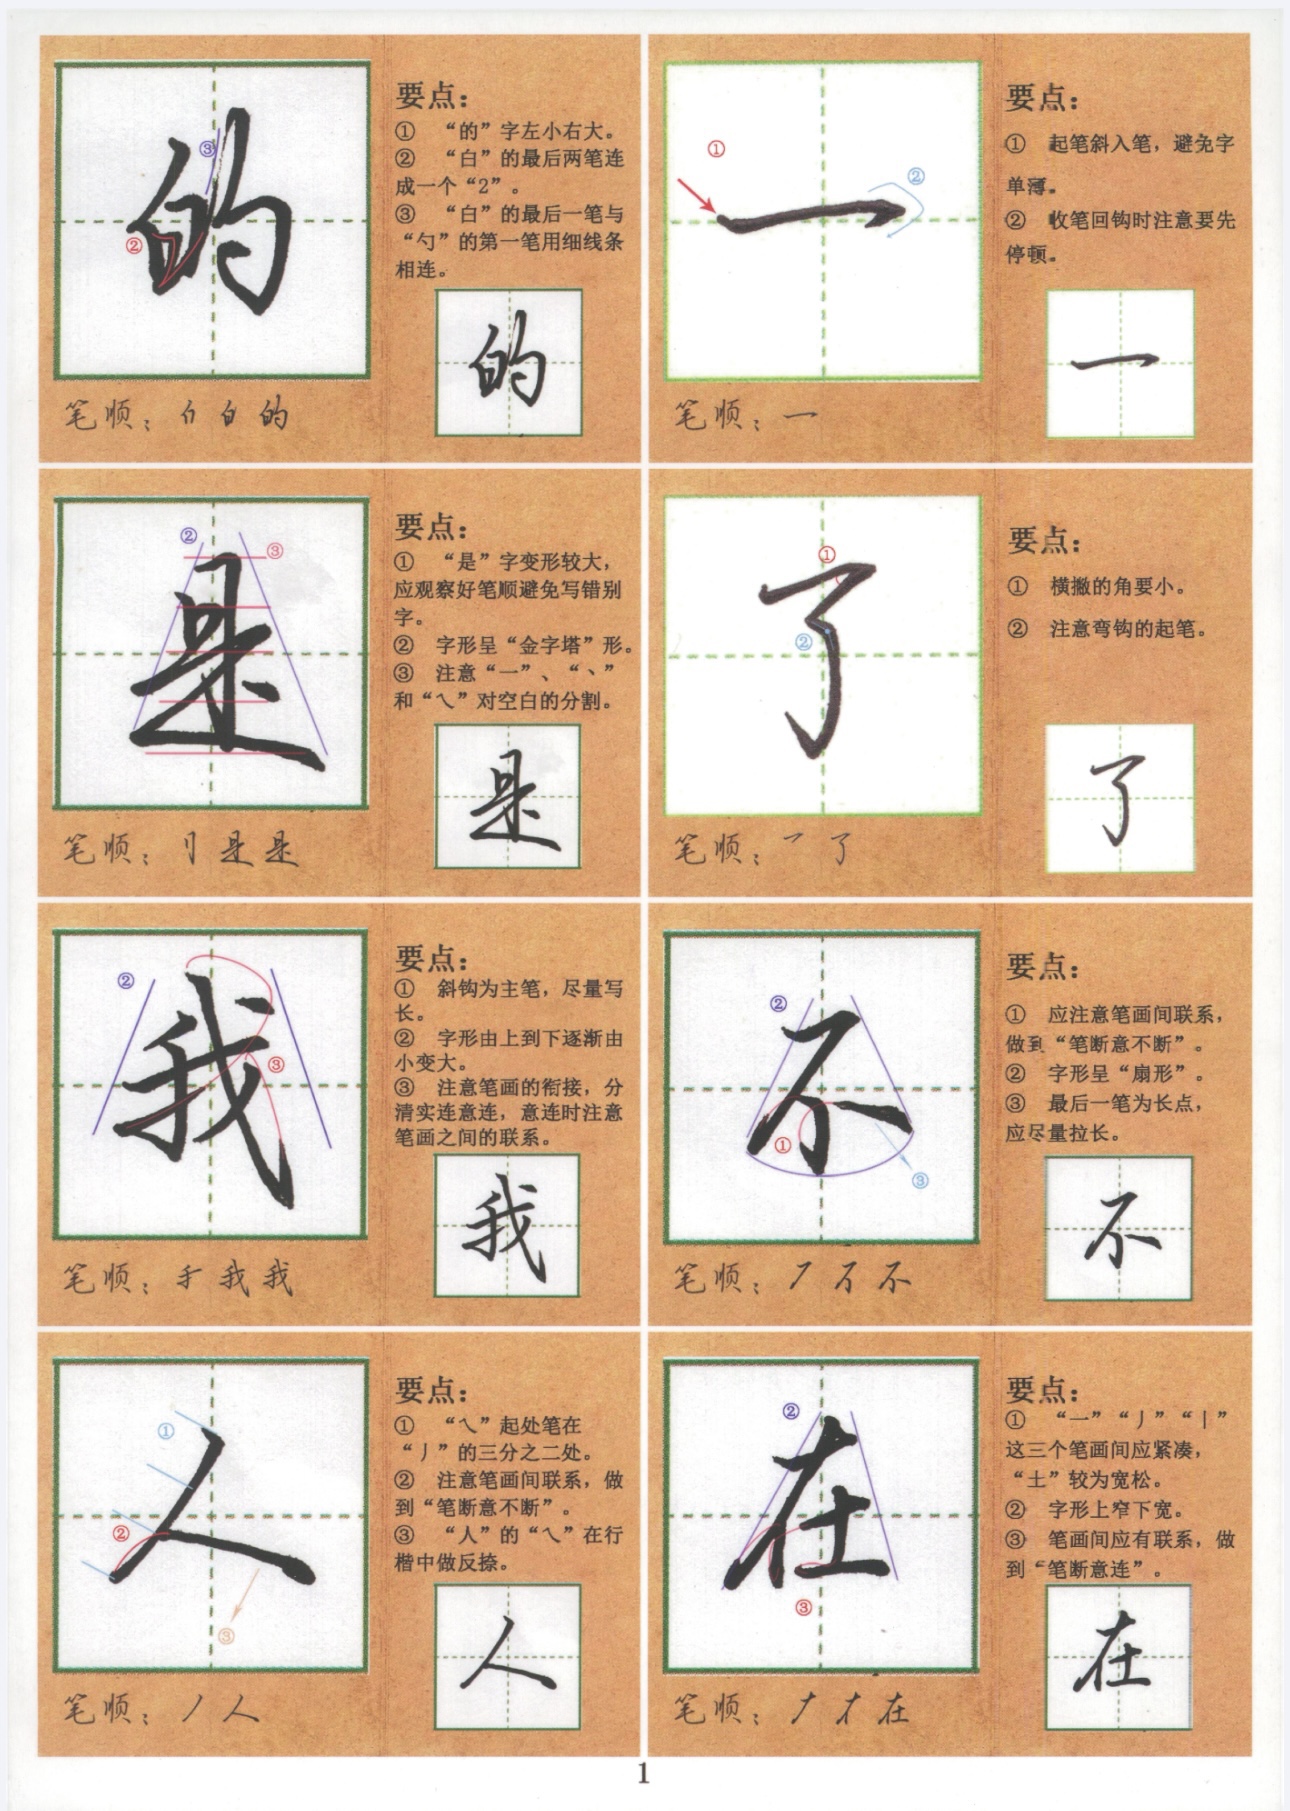 的
③
②
笔顺：白 的
要点：
① “的”字左小右大。
② “白”的最后两笔连
成一个“2”。
③ “白”的最后一笔与
“勺”的第一笔用细线条
相连。
的
①
②
一
笔顺：一
要点：
① 起笔斜入笔，避免字
单薄。
② 收笔回钩时注意要先
停顿。
一
②
③
是
笔顺：是 是
要点：
① “是”字变形较大，
应观察好笔顺避免写错别
字。
② 字形呈“金字塔”形。
③ 注意“一”、“丶”
和“乀”对空白的分割。
是
①
②
了
笔顺：乛 了
要点：
① 横撇的角要小。
② 注意弯钩的起笔。
了
②
③
我
笔顺：手 我 我
要点：
① 斜钩为主笔，尽量写
长。
② 字形由上到下逐渐由
小变大。
③ 注意笔画的衔接，分
清实连意连，意连时注意
笔画之间的联系。
我
②
不
①
③
笔顺：丆 不 不
要点：
① 应注意笔画间联系，
做到“笔断意不断”。
② 字形呈“扇形”。
③ 最后一笔为长点，
应尽量拉长。
不
①
②
人
③
笔顺：丿 人
要点：
① “乀”起处笔在
“丿”的三分之二处。
② 注意笔画间联系，做
到“笔断意不断”。
③ “人”的“乀”在行
楷中做反捺。
人
②
在
③
笔顺：ナ 才 在
要点：
① “一”“丿”“丨”
这三个笔画间应紧凑，
“土”较为宽松。
② 字形上窄下宽。
③ 笔画间应有联系，做
到“笔断意连”。
在
1